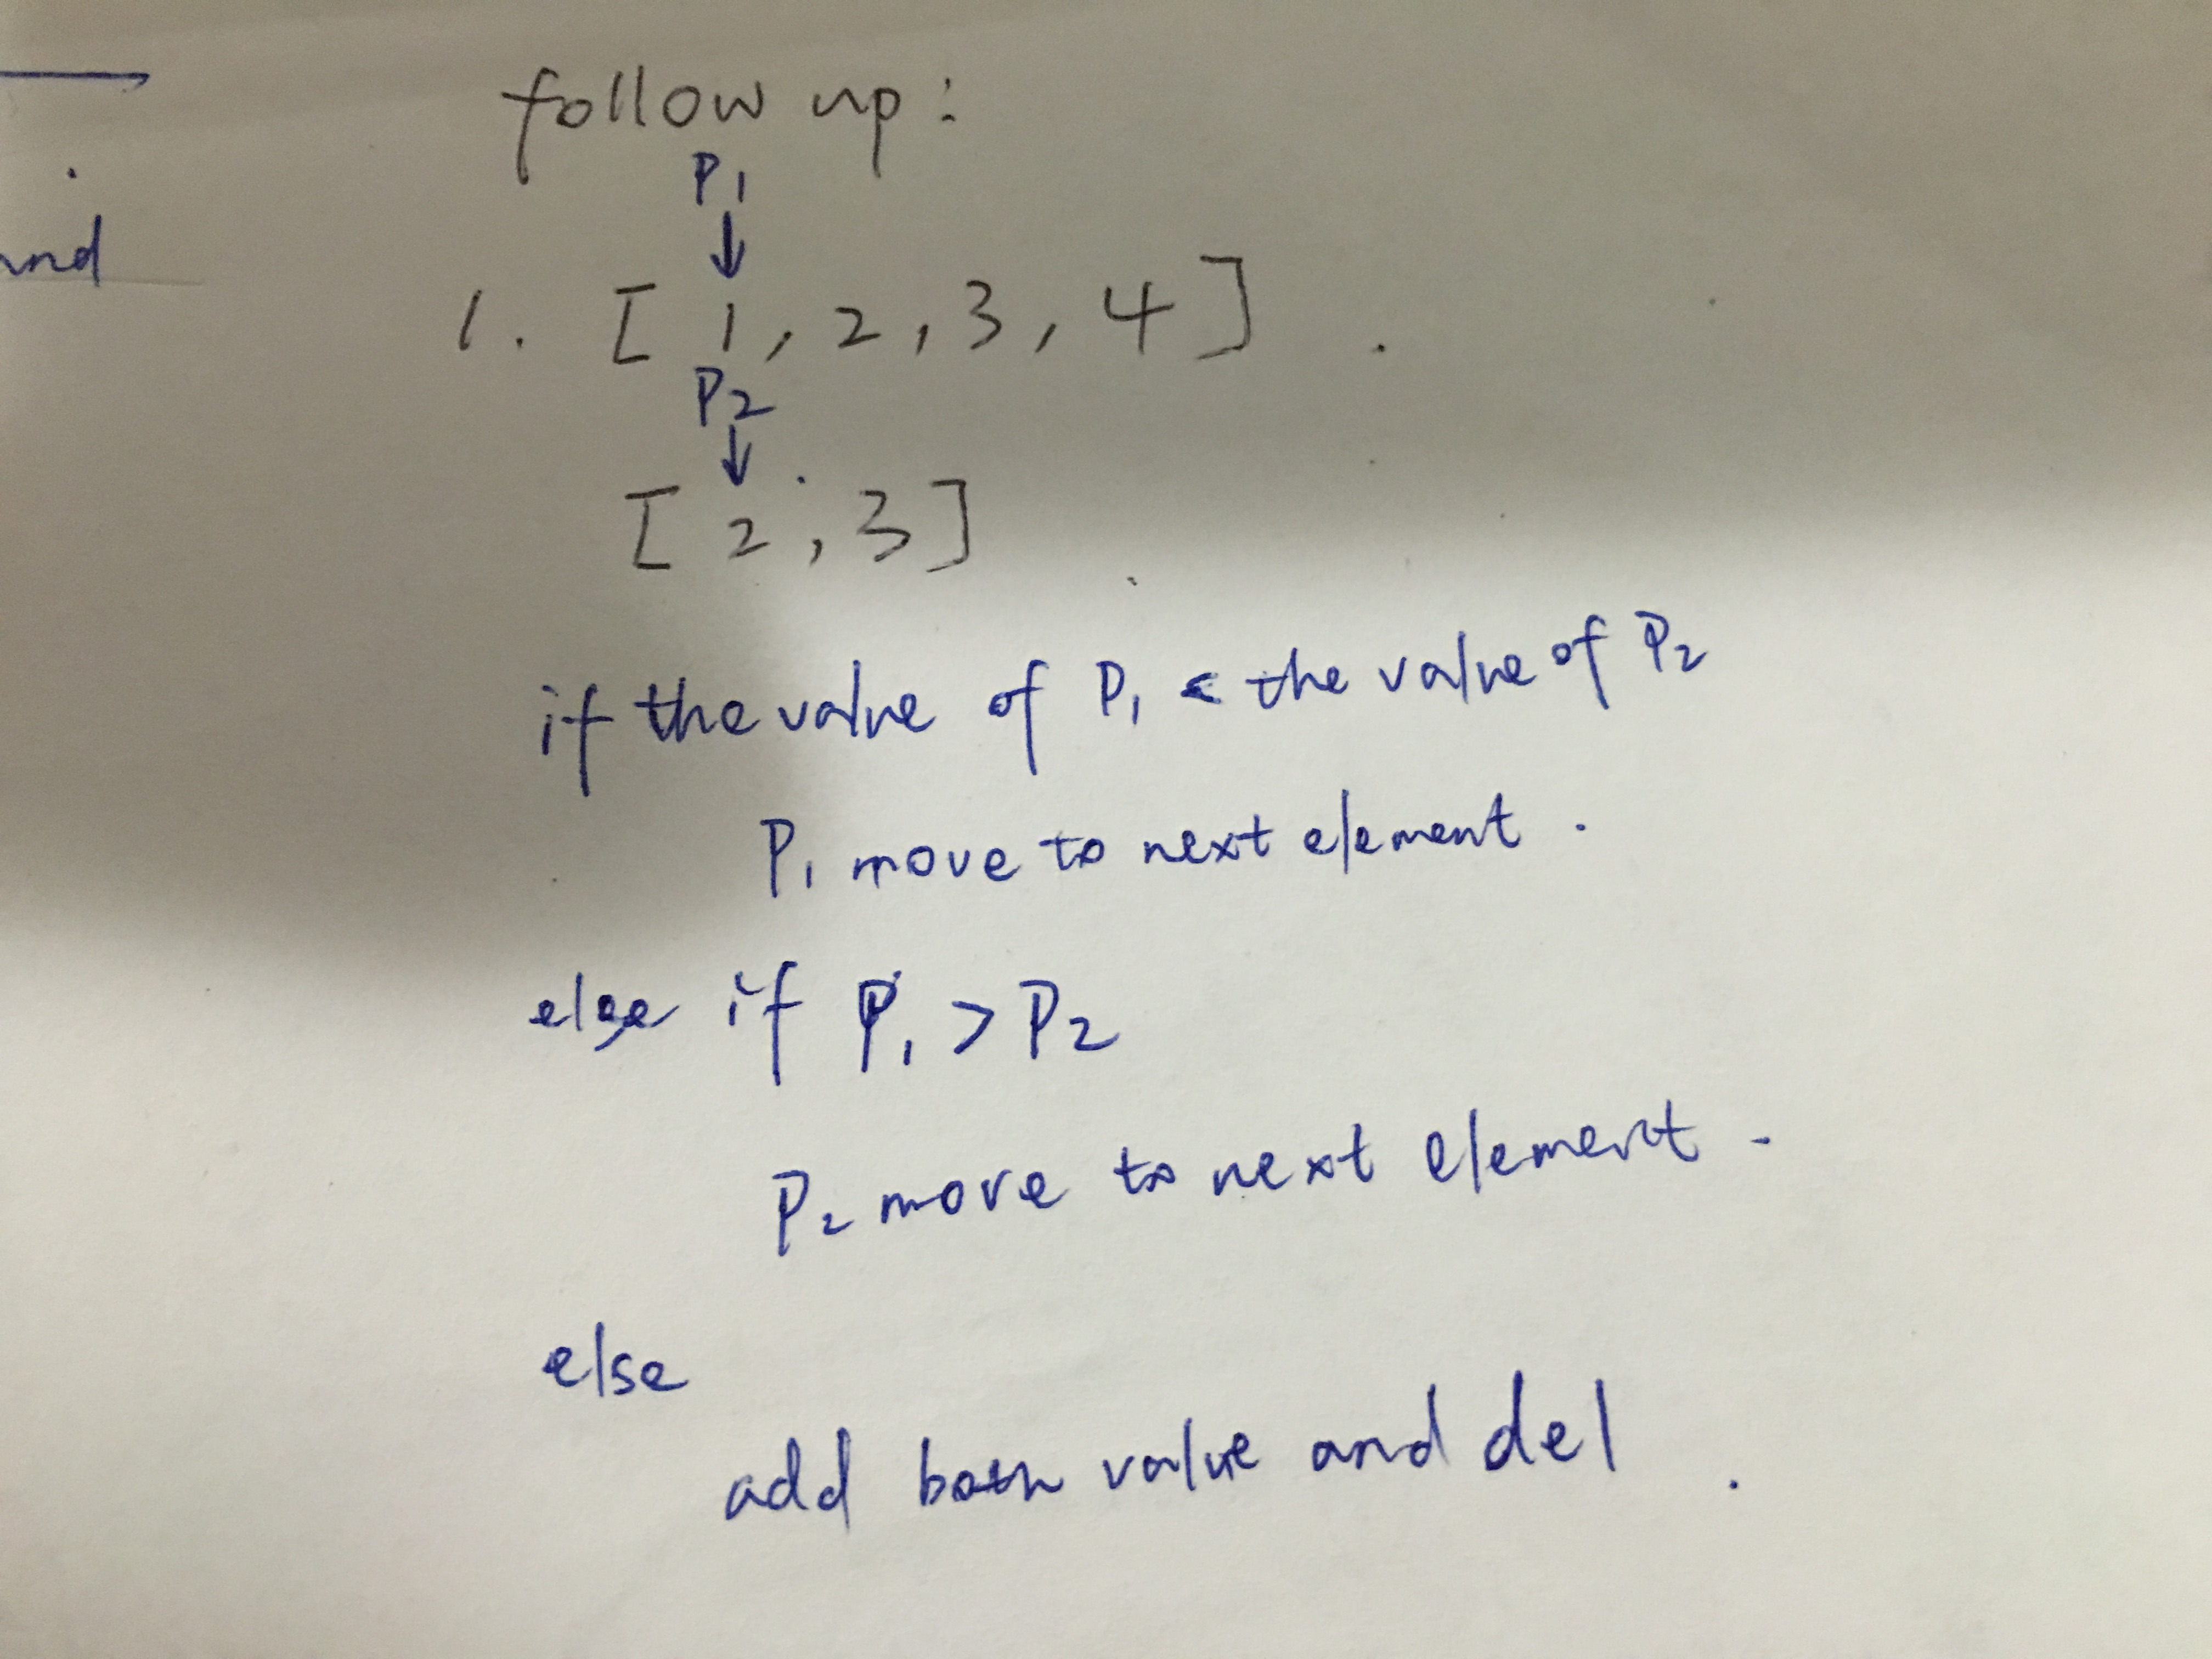 follow up :
P1
↓
1. [ 1, 2, 3, 4 ]
P2
↓
[ 2, 3 ]
if the value of P1 < the value of P2
P1 move to next element.
else if P1 > P2
P2 move to next element.
else
add both value and del.